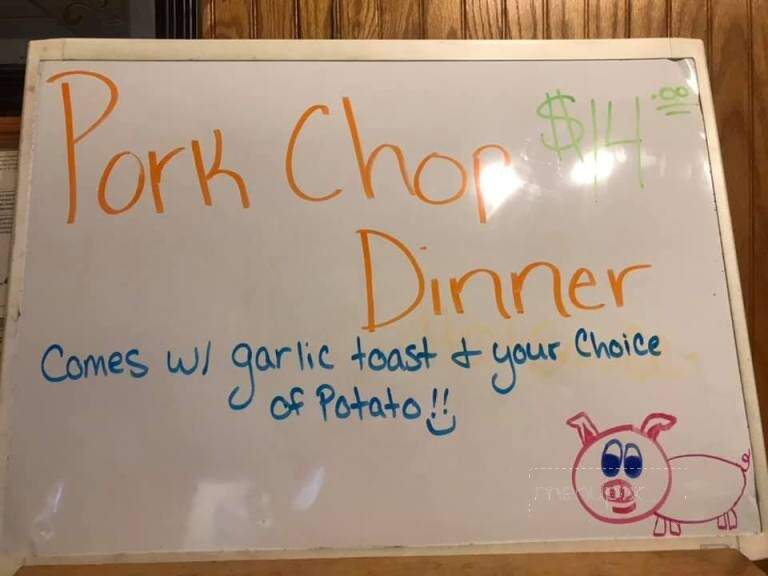 Pork Chop $14.00
Dinner
Comes w/ garlic toast & your Choice
of Potato!!
menupix